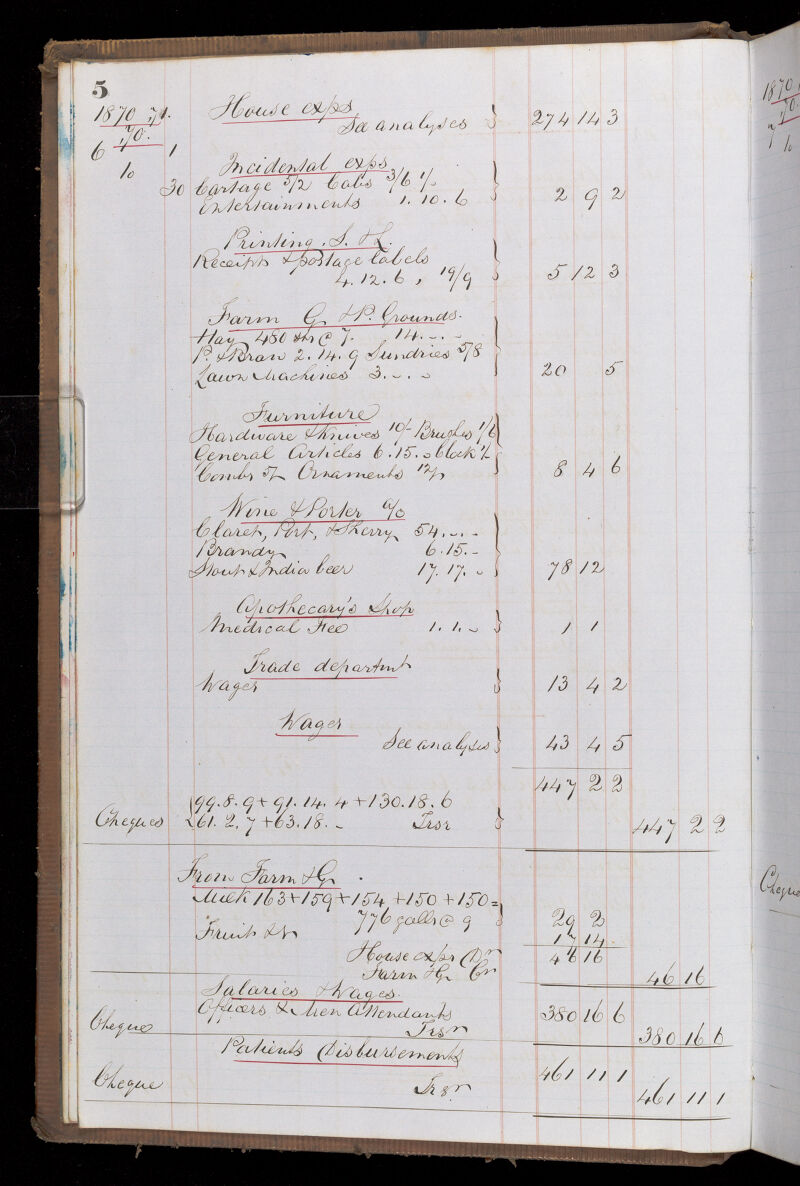 5
1870 71. House exps
See analyses } 274 14 3
6 70. 1
Incidental exps
10 30 Cartage 5/2 Cabs 3/6 1/-
Entertainments 1.10.6 } 2 9 2
Printing. S. &c.
Receipts & postage labels
4.12.6, 19/9 } 5 12 3
Farm G. & P. Grounds.
Hay 480 @ 7. 14.-.-
P. & Bran 2.14.9 Sundries 5/8
Lawn Machines 3.-.- } 20 5
Furniture
Hardware & Knives 10/- Brushes 1/6
General Articles 6.15.- Clock
Combs Ornaments } 8 4 6
Wine & Porter a/c
Claret, Port, & Sherry 54.-.-
Brandy 6.15.-
Stout & India beer 17.17.- } 78 12
Apothecary's Shop
Medical Fee 1.1.- } 1 1
Trade departmt
Wages } 13 4 2
Wages
See analyses } 43 4 5
447 2 2
{ 99.8.9 + 91.14.4 + 130.18.6
Cheques 61.2.7 + 63.18.- Trsr } 447 2 2
From Farm & G.
Milk 163+159+154+150+150=
776 galls @ 9 } 29 2
Fruit &c 17 14
House exps Dr 46 16
Farm & G. Cr 46 16
Salaries & Wages.
Officers & Men Attendants 380 16 6
Cheque Trsr 380 16 6
Patients Disbursements
461 11 1
Cheque Trsr. 461 11 1
1870
70
7
10
Cheque